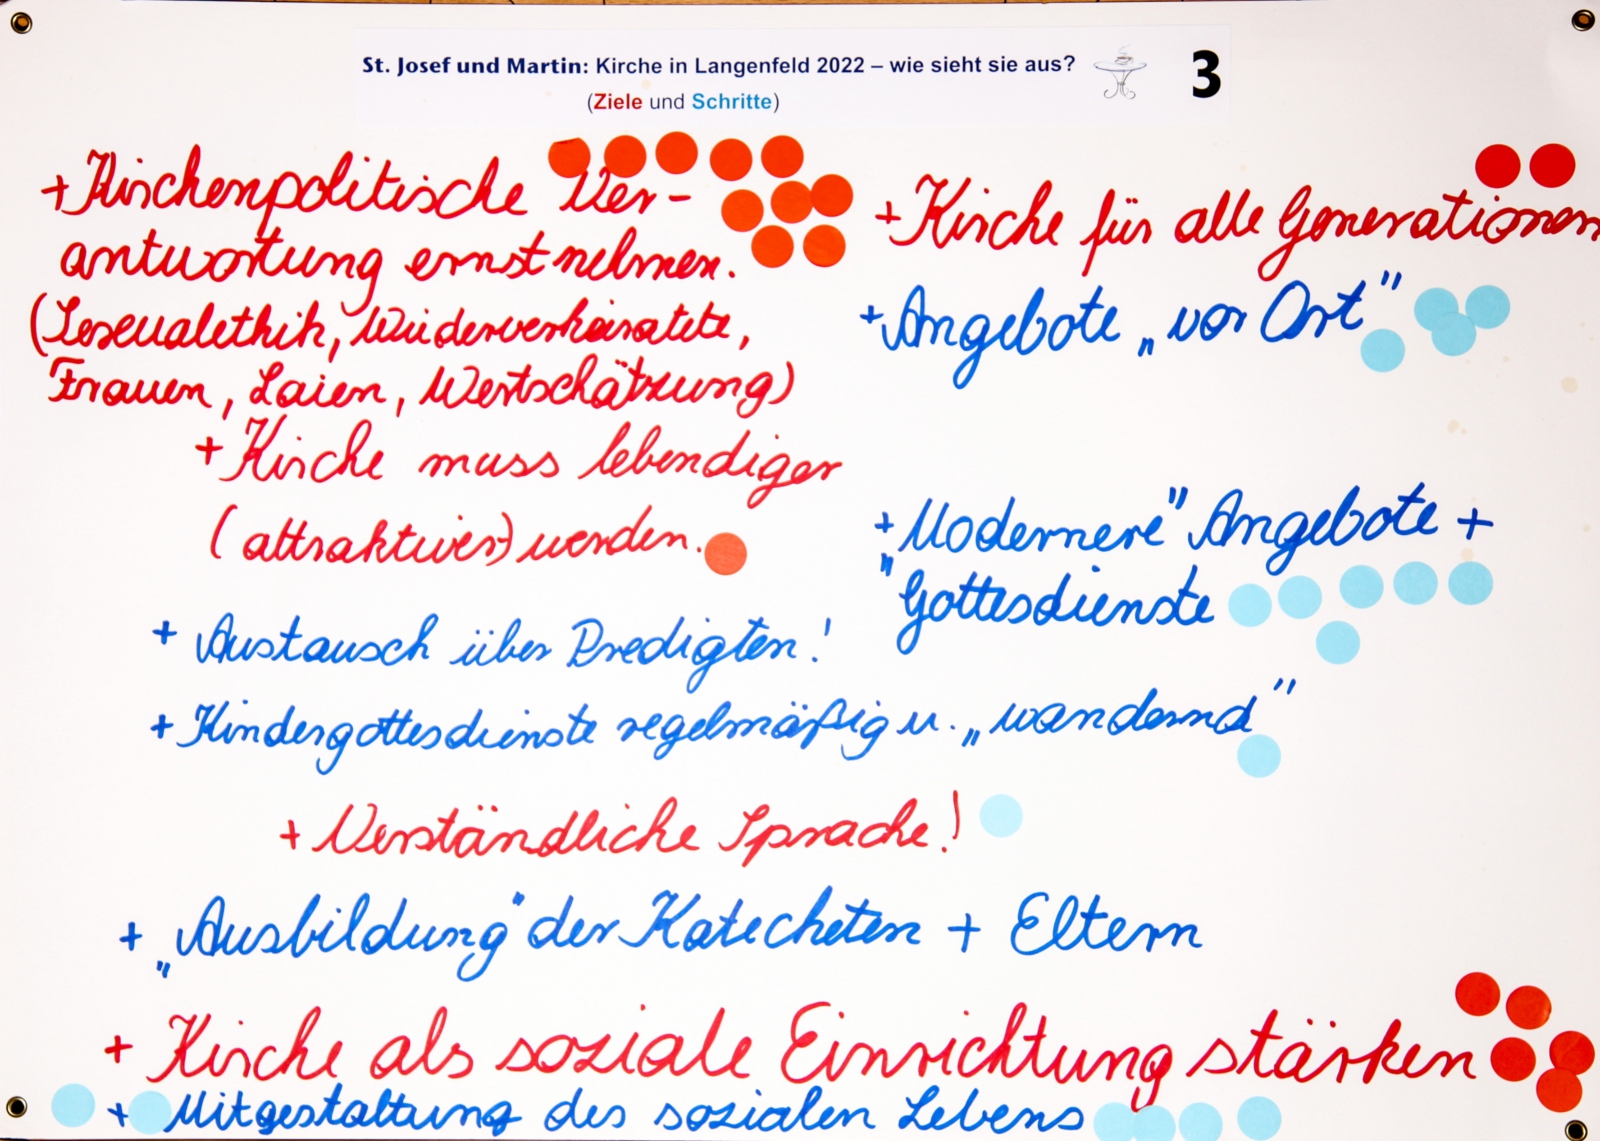 St. Josef und Martin: Kirche in Langenfeld 2022 – wie sieht sie aus?
(Ziele und Schritte)
3
+ Kirchenpolitische Ver-
antwortung ernst nehmen.
(Sexualethik, Wiederverheiratete,
Frauen, Laien, Wertschätzung)
+ Kirche muss lebendiger
(attraktiver) werden.
+ Kirche für alle Generationen
+ Angebote „vor Ort"
+ Modernere" Angebote +
"Gottesdienste
+ Austausch über Predigten!
+ Kindergottesdienste regelmäßig u. „wandernd"
+ Verständliche Sprache!
+ „Ausbildung" der Katecheten + Eltern
+ Kirche als soziale Einrichtung stärken
+ Mitgestaltung des sozialen Lebens